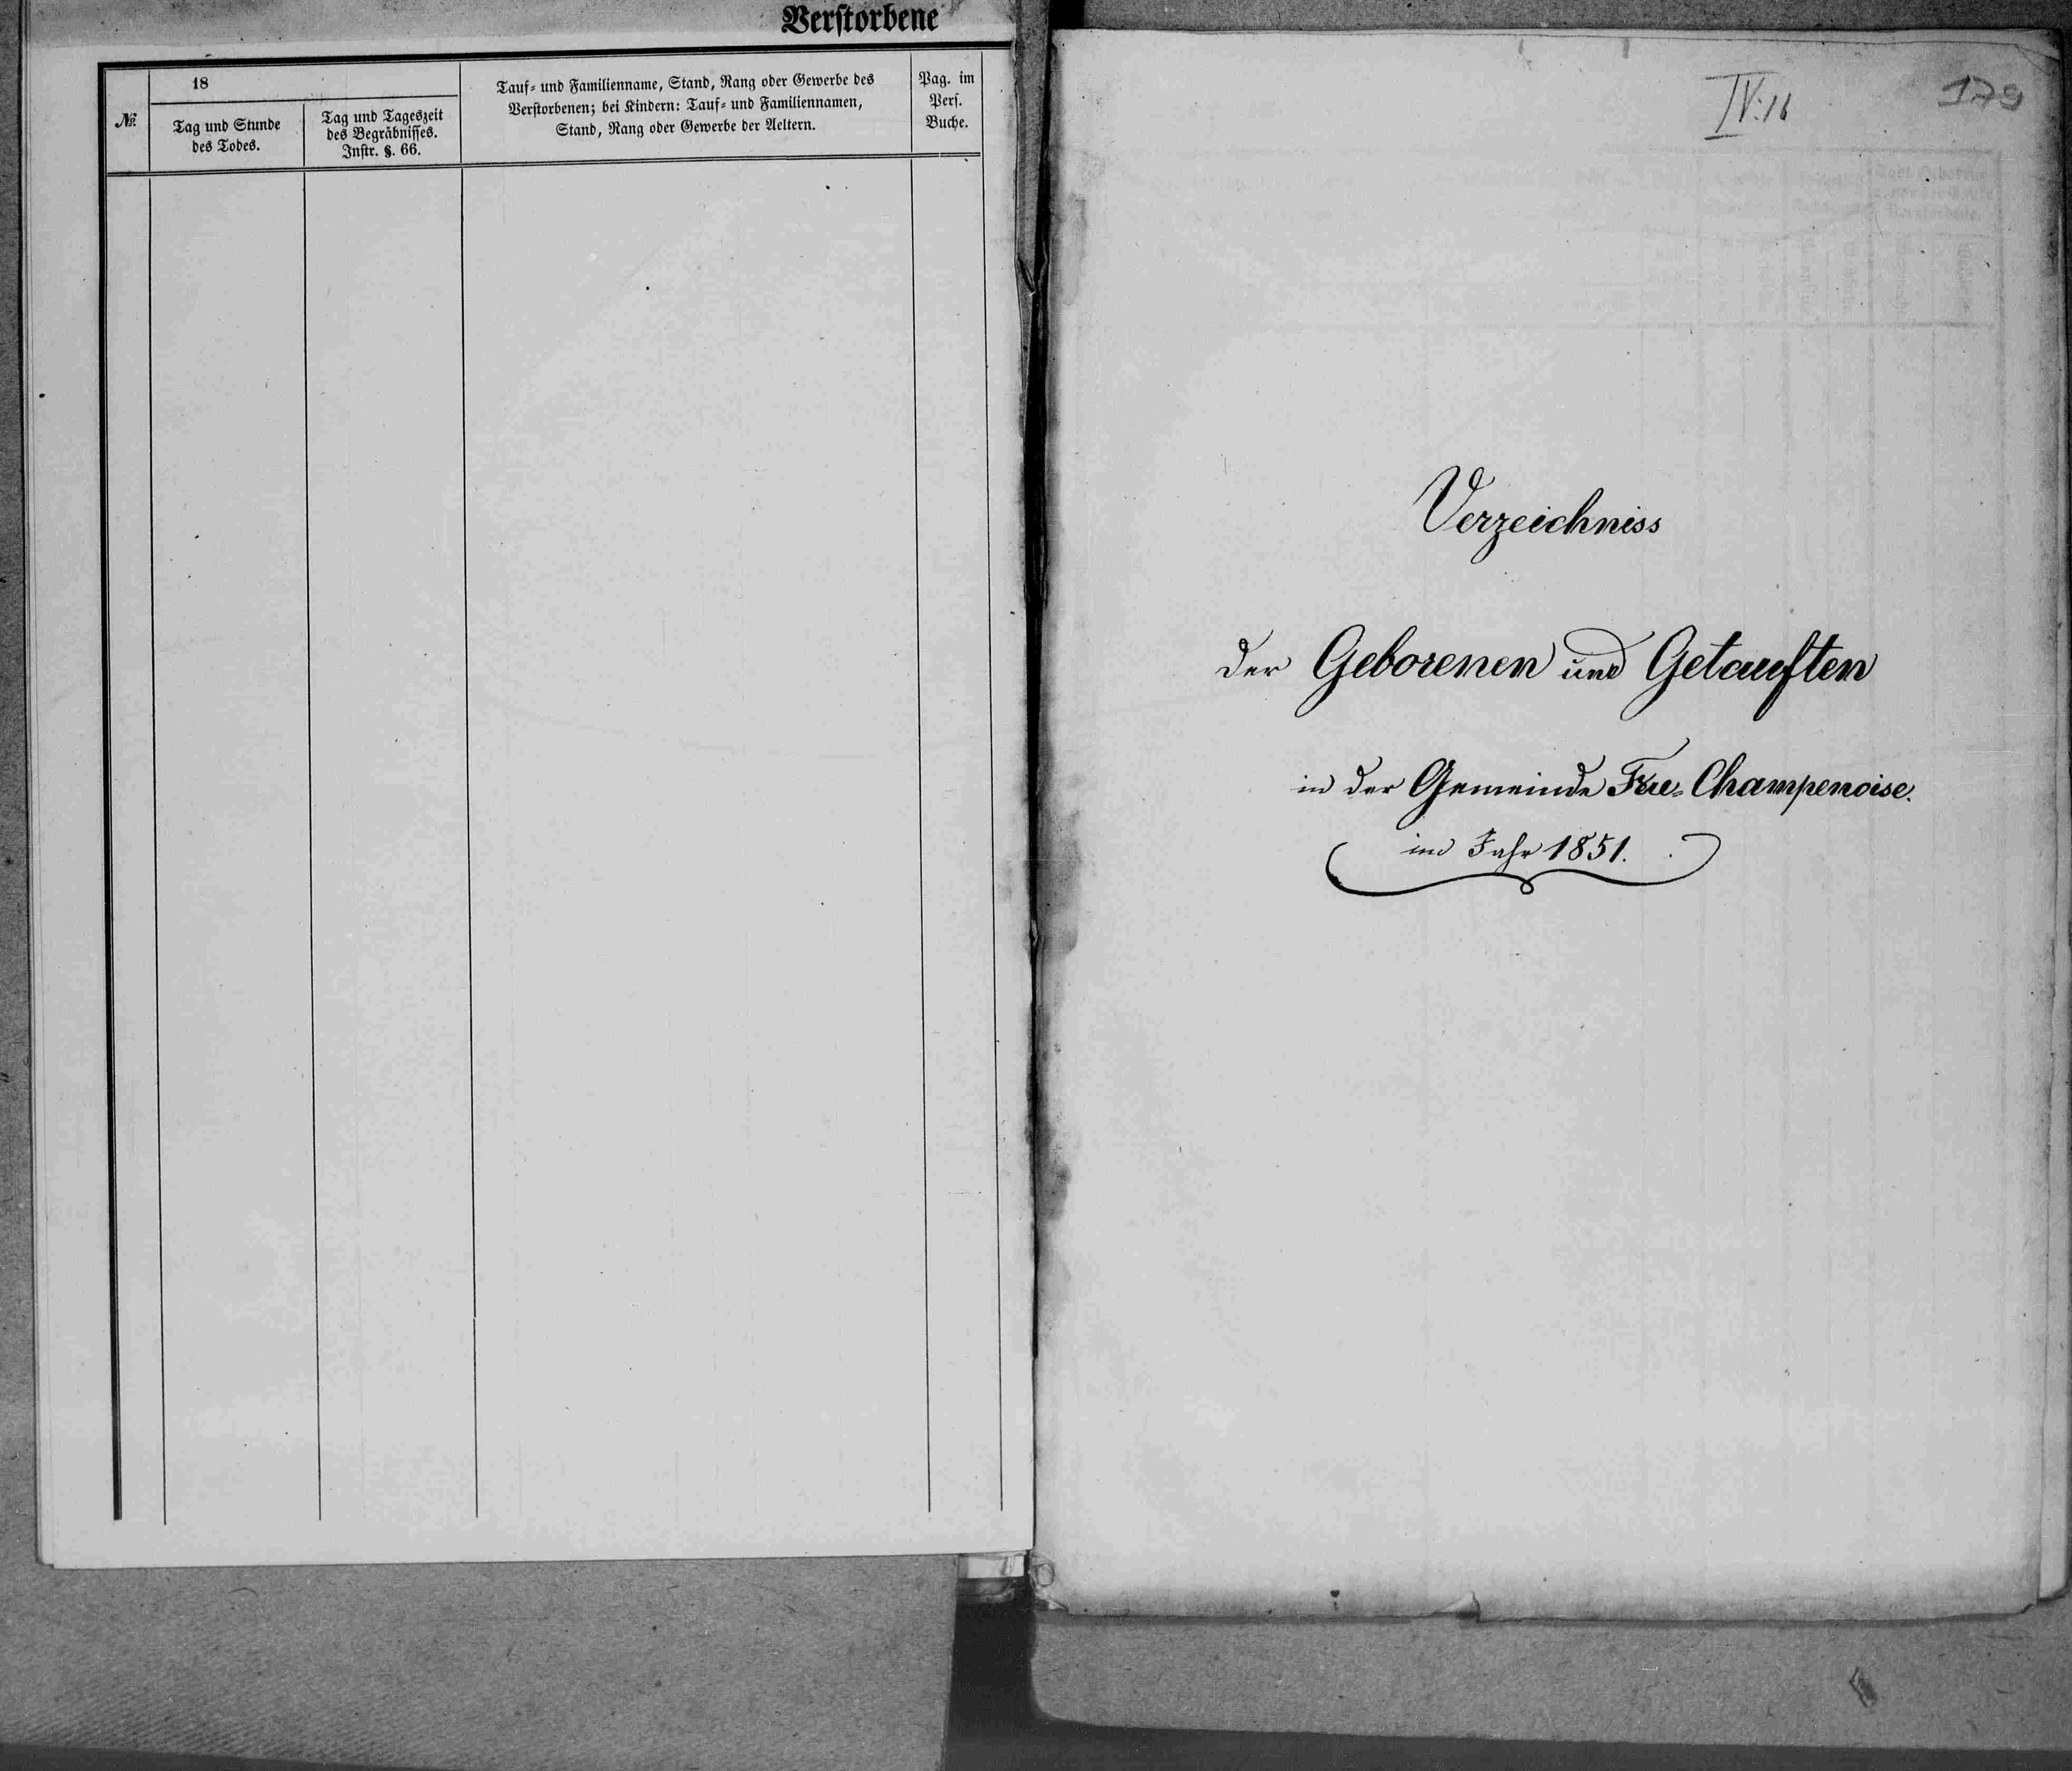 Verstorbene
№
18
Tag und Stunde
des Todes.
Tag und Tageszeit
des Begräbnisses.
Instr. §. 66.
Tauf- und Familienname, Stand, Rang oder Gewerbe des
Verstorbenen; bei Kindern: Tauf- und Familiennamen,
Stand, Rang oder Gewerbe der Aeltern.
Pag. im
Pers.
Buche.
IV. 16
179
Verzeichniss
der Geborenen und Getauften
in der Gemeinde Champenoise.
im Jahr 1851.